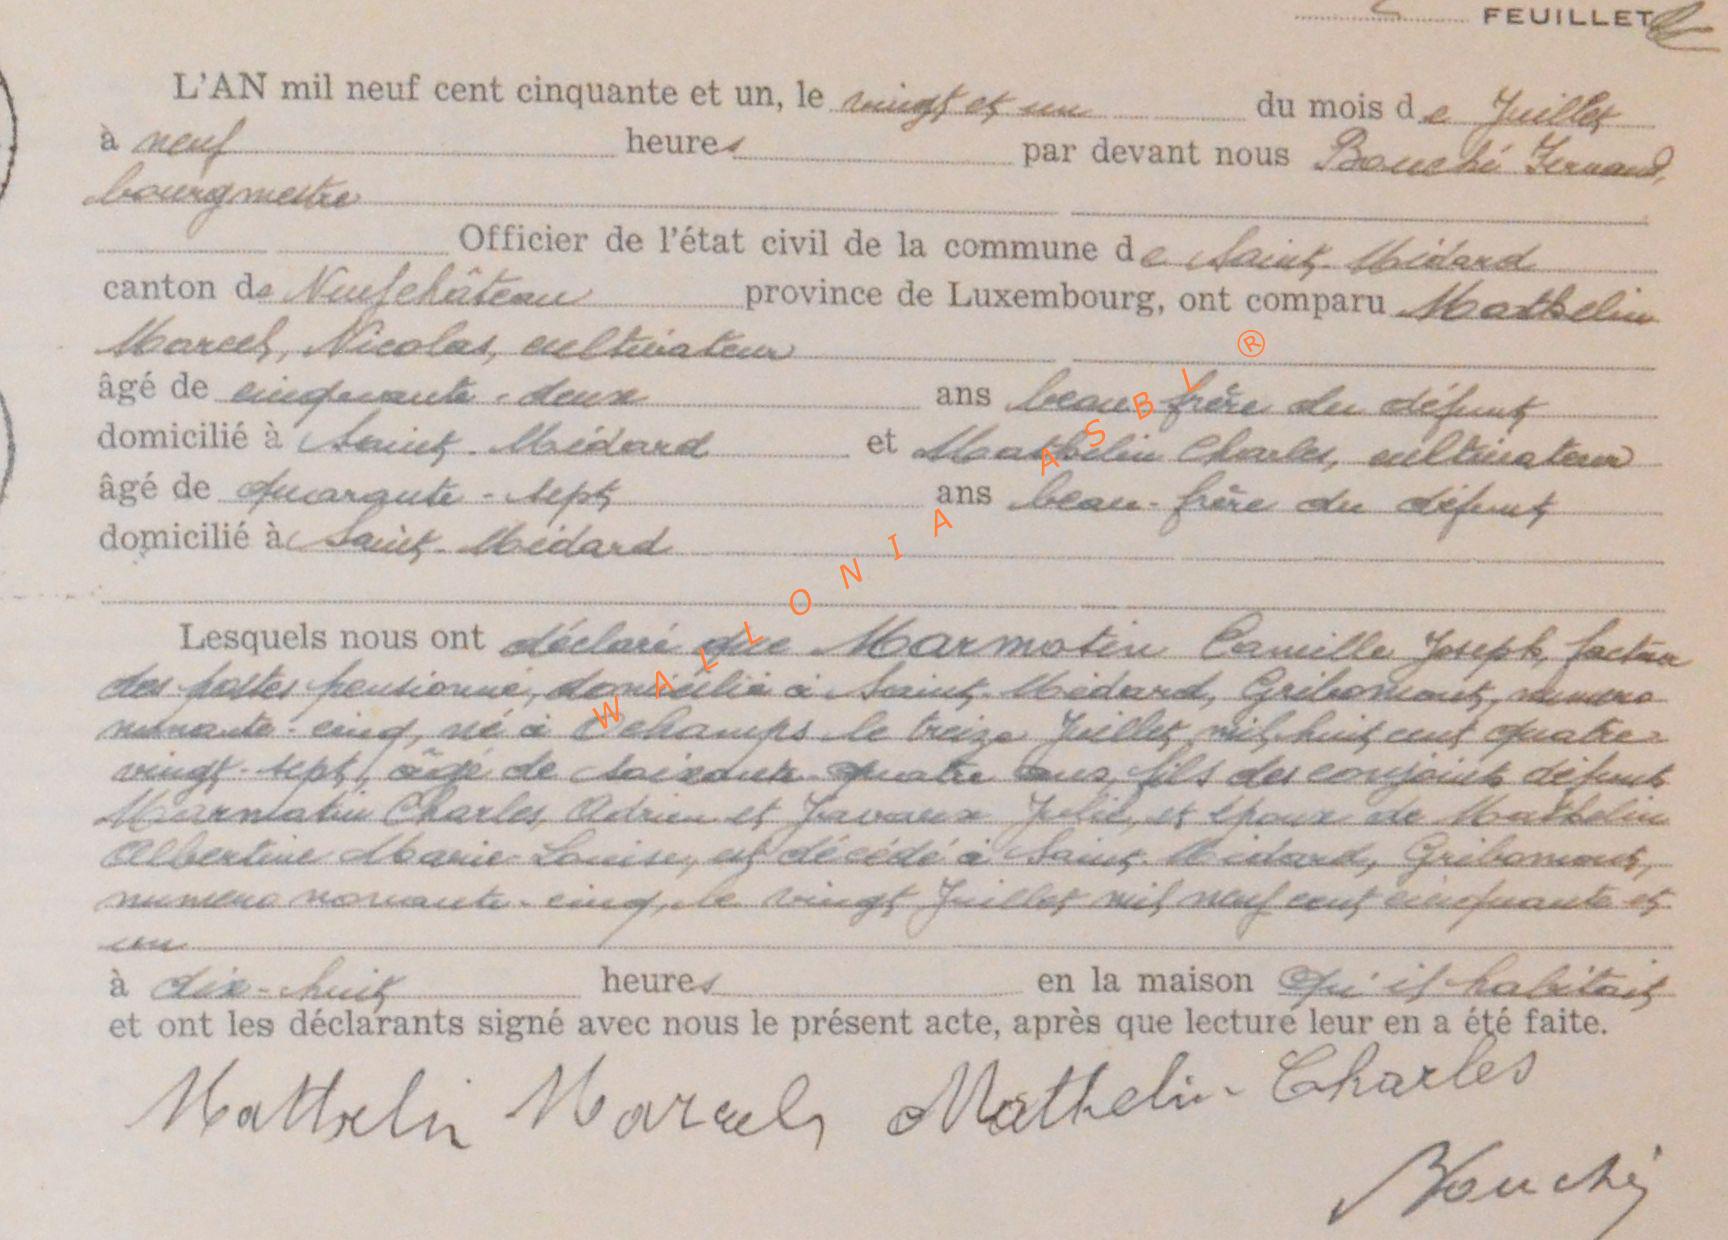 FEUILLET
L'AN mil neuf cent cinquante et un, le vingt et un du mois de Juillet
à neuf heures par devant nous Bouché Fernand,
bourgmestre
Officier de l'état civil de la commune de Saint-Médard
canton de Neufchâteau province de Luxembourg, ont comparu Mathelin
Marcel, Nicolas, cultivateur
âgé de cinquante-deux ans beau-frère du défunt
domicilié à Saint-Médard et Mathelin Charles, cultivateur
âgé de quarante-sept ans beau-frère du défunt
domicilié à Saint-Médard
Lesquels nous ont déclaré que Marmotin Camille Joseph, facteur
des postes pensionné, domicilié à Saint-Médard, Gribomont, numéro
nonante-cinq, né à Ochamps le treize Juillet mil huit cent quatre-
vingt-sept, âgé de soixante-quatre ans, fils des conjoints défunts
Marmotin Charles, Adrien et Javaux Julie, et époux de Mathelin
Albertine Marie-Louise, est décédé à Saint-Médard, Gribomont,
numéro nonante-cinq, le vingt Juillet mil neuf cent cinquante et
un
à dix-huit heures en la maison qu'il habitait
et ont les déclarants signé avec nous le présent acte, après que lecture leur en a été faite.
Mathelin Marcel Mathelin-Charles
Bouché
WALLONIA ASBL ®